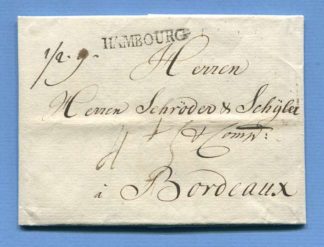 HAMBOURG
1/2. 9.
Herren
Herren Schröder & Schÿler
& Comp:
à Bordeaux